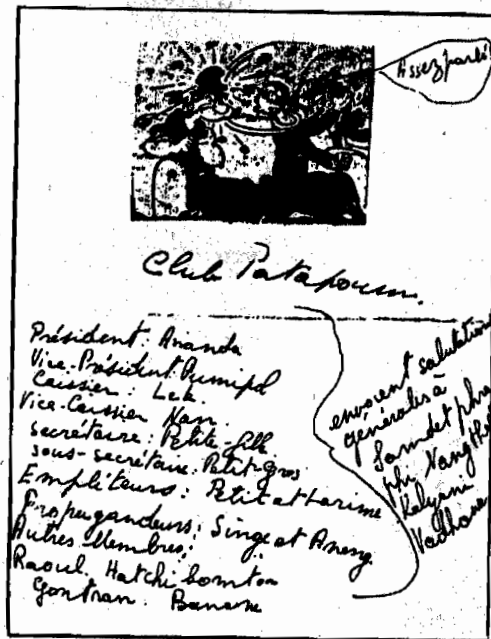 Assez parlé
Club Patapoum.
Président: Ananda
Vice-Président Pumipol
Caissier: Lek
Vice-Caissier Nan
Secrétaire: Petite-fille
sous-secrétaire: Petit-Gros
Empléteurs: Petit at Larime
Propagandeurs: Singe at
Autres Membres:
Raoul. Hatchi bomton
Gontran. Banane
envoient salutations
générales à
Somdet phra
phi Nang
Kalyani
Vadhana